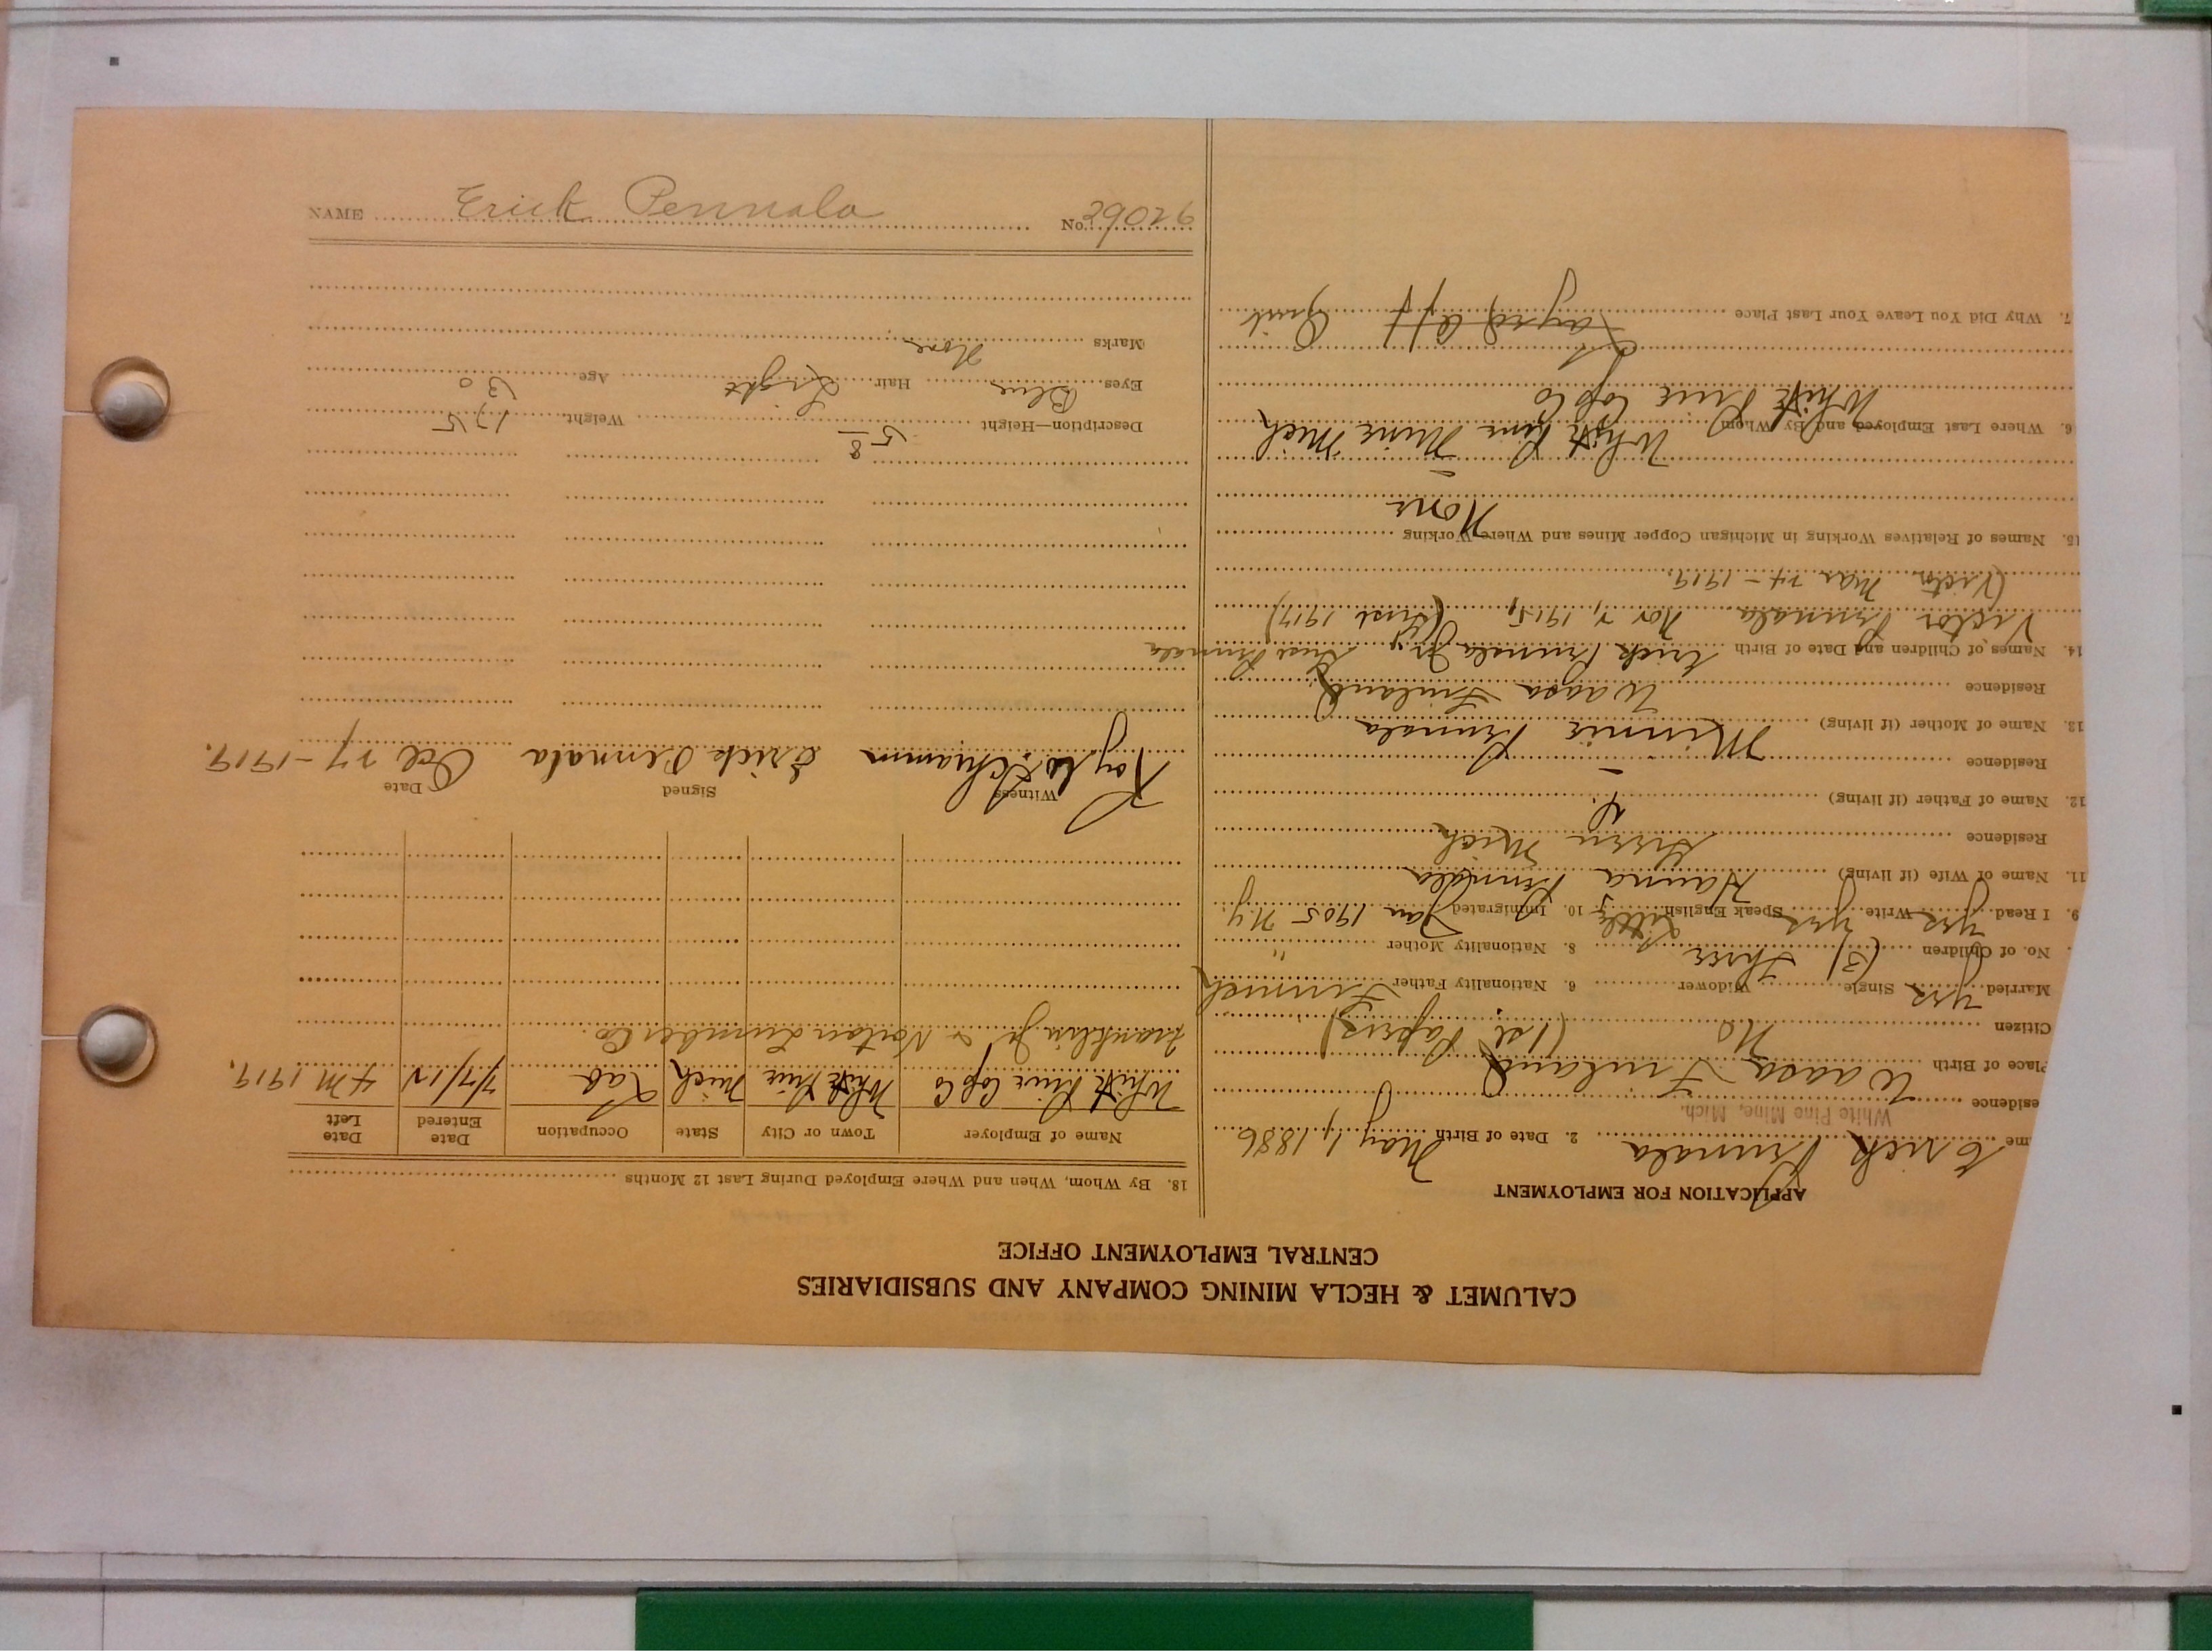 CALUMET & HECLA MINING COMPANY AND SUBSIDIARIES
CENTRAL EMPLOYMENT OFFICE
APPLICATION FOR EMPLOYMENT
me Erick Pennala 2. Date of Birth May 1, 1886
White Pine Mine, Mich.
esidence
Place of Birth Waasa Finland
Citizen No (1st Papers)
Married yes Single Widower 6. Nationality Father Finnish
No. of Children (3) three 8. Nationality Mother "
9. I Read yes Write yes Speak English Little 10. Immigrated Jan 1905 N.Y.
11. Name of Wife (if living) Hanna Pennala
Residence Green Mich
12. Name of Father (if living)
Residence
13. Name of Mother (if living) Minnie Pennala
Residence Waasa Finland
14. Names of Children and Date of Birth Erick Pennala Jr, Pennala
Victor Pennala Nov 2, 1915, (first 1917)
(Victor Mar 24 - 1919.
15. Names of Relatives Working in Michigan Copper Mines and Where Working
None
White Pine Mine Mich
6. Where Last Employed and By Whom
White Pine Cop Co
7. Why Did You Leave Your Last Place Layed off Quit
18. By Whom, When and Where Employed During Last 12 Months
Name of Employer Town or City State Occupation Date Entered Date Left
White Pine Cop Co White Pine Mich Lab 4 M 1919.
Franklin Jr & Norton Lumber Co.
Witness Signed Date
Roy Schramm Erick Pennala Oct 27 - 1919.
Description—Height 5 8 Weight 175
Eyes Blue Hair Light Age 30
Marks None
NAME Erick Pennala No. 29026